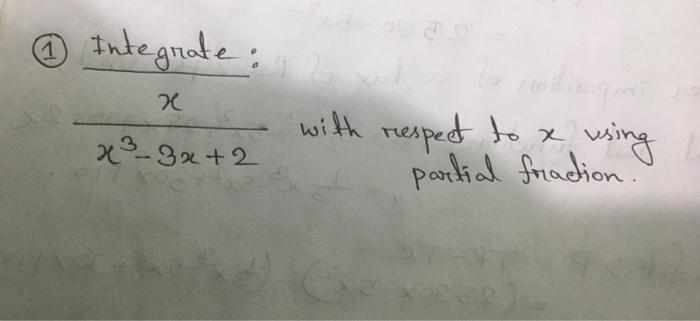 ① Integrate:
x
x³-3x+2
with respect to x using
partial fraction.